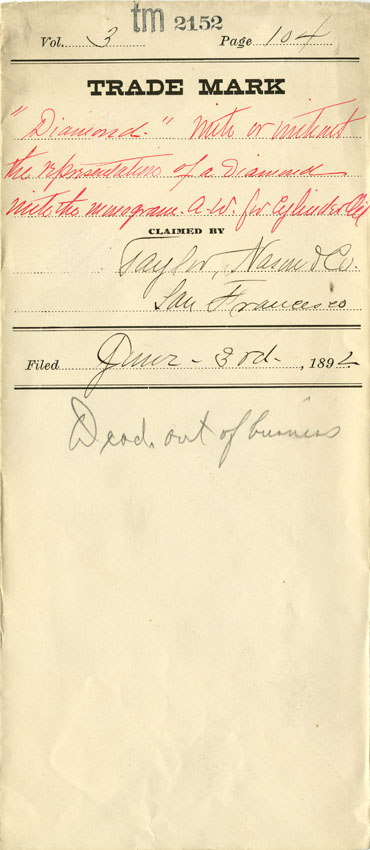 tm 2152
Vol. 3 Page 104
TRADE MARK
"Diamond." With or without
the representation of a Diamond
with the monogram A. W. for Cylinder Oil
CLAIMED BY
Taylor, Nason & Co.
San Francisco
Filed June - 3rd - , 1892
Dead. out of business